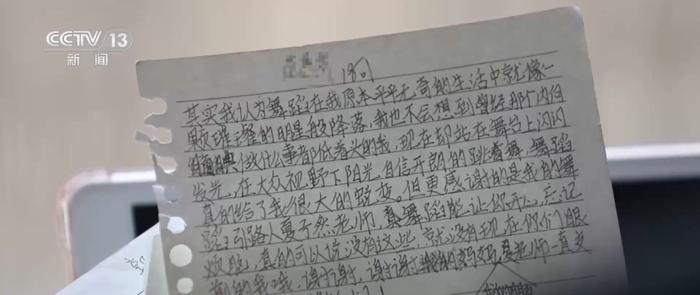 CCTV 13
新闻
180
其实我认为舞蹈在我原本平平无奇的生活中就像一
颗璀璨的明星般降落，我也不会想到曾经那个内向
做什么事都低着头的我，现在却站在舞台上闪闪
发光，在大众视野下阳光，自信开朗的跳着舞，舞蹈
真的给了我很大的蜕变。但更感谢的是我的舞
蹈引路人夏于然老师，舞蹈能让你开心，忘记
烦恼，真的可以说没有这些，就没有现在你们眼
前的我哦，谢谢，谢谢妈妈，夏老师一直支